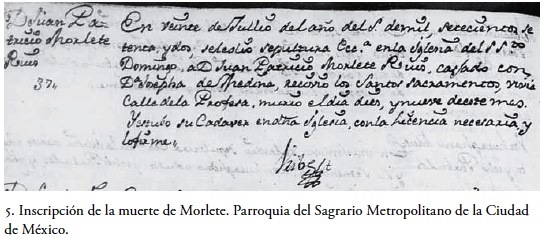 Dn Juan Pa=
tricio Morlete
Ruis
37,,
En veinte de Jullio del año del Sr. de mil, setecientos, se
tenta, y dos, se le dio sepultura Ecca. en la Iglesia del Sr Sto
Domingo, a Dn Juan Patricio Morlete Ruis, casado con
Da Josepha de Medina, recivio los Santos sacramentos, vivia
Calle de la Profesa, murio el dia dies, y nueve de este mes.
Y estubo su Cadaver en dha Iglesia, con la licencia necesaria, y
lo firme,
5. Inscripción de la muerte de Morlete. Parroquia del Sagrario Metropolitano de la Ciudad
de México.